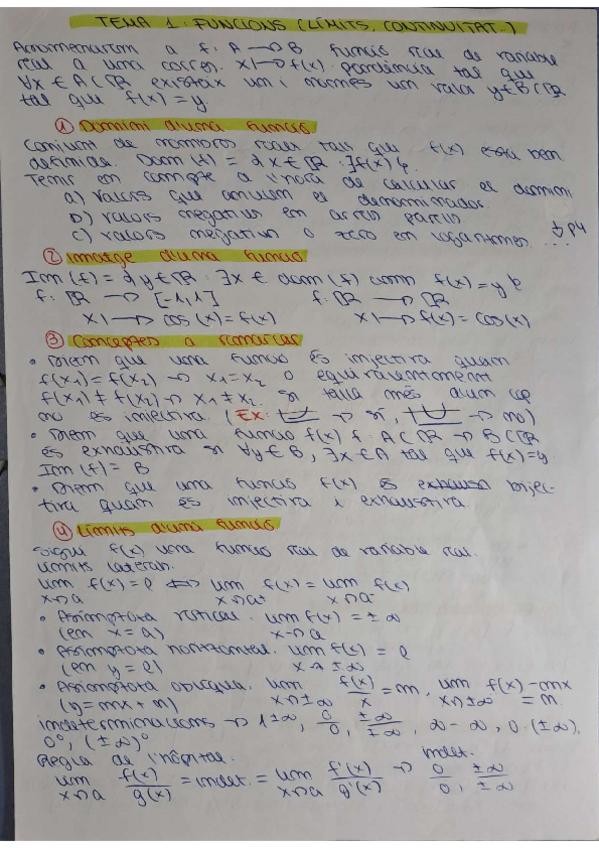 TEMA 1: FUNCIONS (LÍMITS, CONTINUITAT..)
Anomenarem a f: A → B funció real de variable
real a una corresp. x ↦ f(x) tal que
∀x ∈ A ⊂ ℝ existeix un i només un valor y ∈ B ⊂ ℝ
tal que f(x) = y.
① Domini d'una funció.
Conjunt de nombres reals tals que f(x) està ben
definida. Dom (f) = {x ∈ ℝ : ∃ f(x)}.
Tenir en compte a l'hora de calcular el domini
a) valors que anul·len el denominador.
b) valors negatius en arrels parells
c) valors negatius o zero en logaritmes ...
② Imatge d'una funció
Im (f) = {y ∈ ℝ : ∃x ∈ dom (f) amb f(x) = y}
f: ℝ → [-1,1] f: ℝ → ℝ
x ↦ cos (x) = f(x) x ↦ f(x) = cos(x)
③ Conceptes a remarcar
• Diem que una funció és injectiva quan
f(x₁) = f(x₂) → x₁ = x₂ o equivalentment
f(x₁) ≠ f(x₂) → x₁ ≠ x₂. Si talla més d'un cop
no és injectiva. (Ex: → sí, → no)
• Diem que una funció f(x) f: A ⊂ ℝ → B ⊂ ℝ
és exhaustiva si ∀y ∈ B, ∃x ∈ A tal que f(x) = y
Im (f) = B
• Diem que una funció f(x) és bijec-
tiva quan és injectiva i exhaustiva.
④ Límits d'una funció.
Sigui f(x) una funció real de variable real.
Límits laterals.
lim f(x) = l ⟺ lim f(x) = lim f(x)
x→a x→a⁺ x→a⁻
• Asímptota vertical. lim f(x) = ±∞
(en x = a) x→a
• Asímptota horitzontal. lim f(x) = l
(en y = l) x→±∞
• Asímptota obliqua. lim f(x)/x = m, lim f(x) - mx
(y = mx + n) x→±∞ x→±∞ = n.
indeterminacions → 1^±∞, 0/0, ±∞/±∞, ∞ - ∞, 0·(±∞),
0⁰, (±∞)⁰
Regla de l'hôpital. indet.
lim f(x)/g(x) = indet. = lim f'(x)/g'(x) → 0/0, ±∞/±∞
x→a x→a